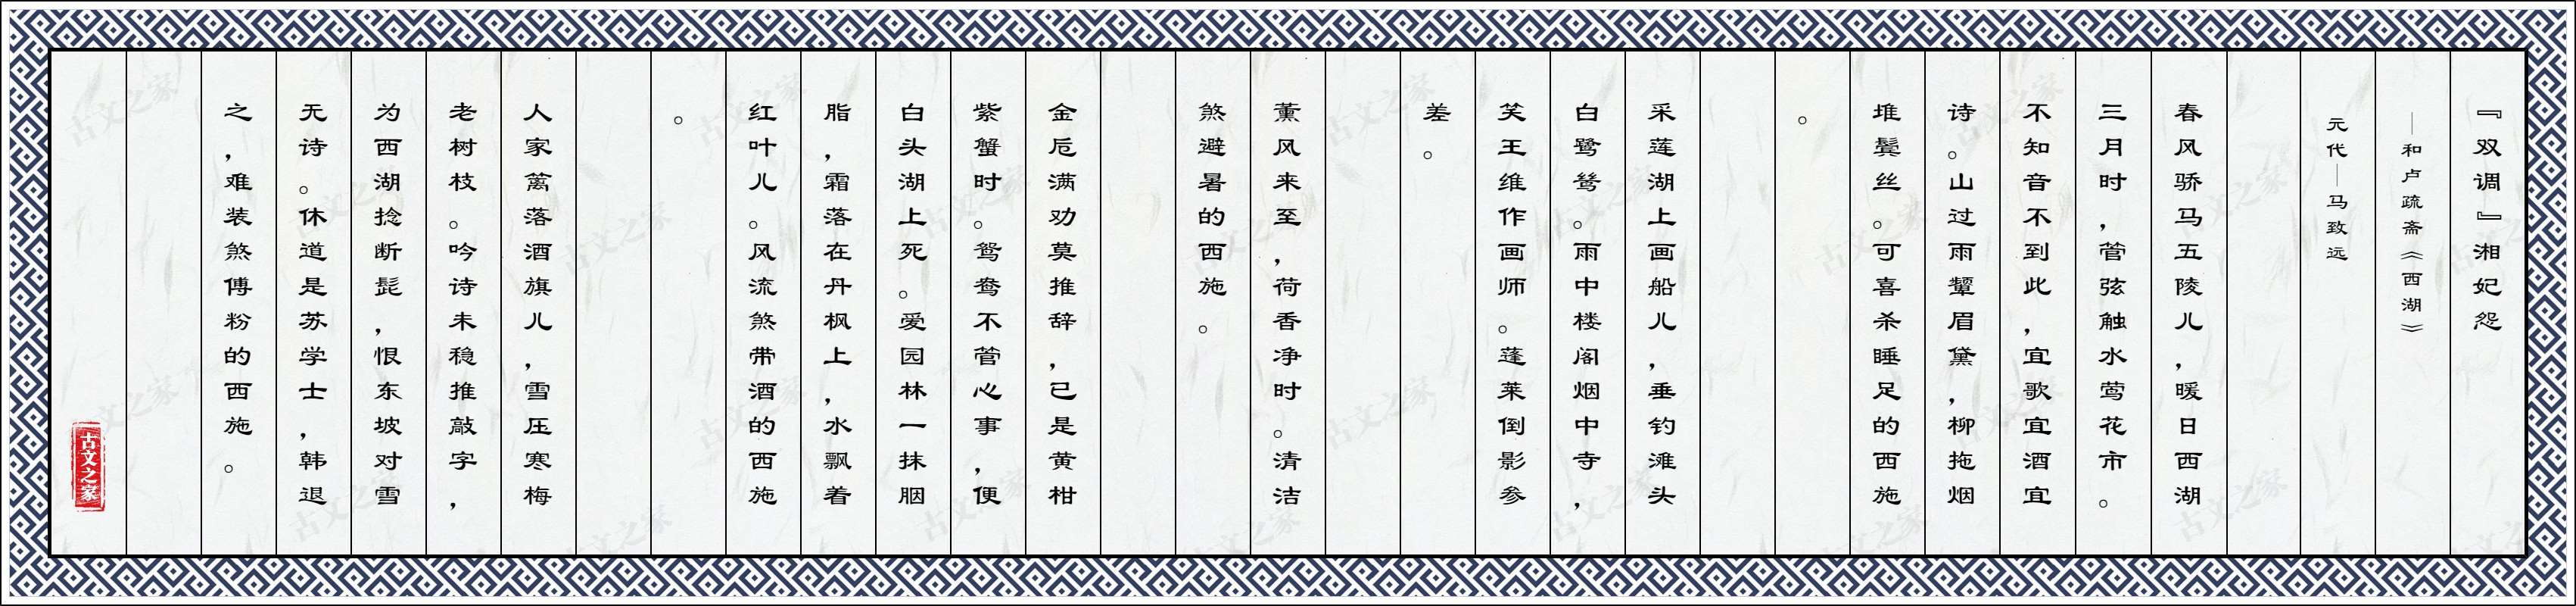 『双调』湘妃怨
——和卢疏斋《西湖》
元代——马致远
春风骄马五陵儿，暖日西湖
三月时，管弦触水莺花市。
不知音不到此，宜歌宜酒宜
诗。山过雨颦眉黛，柳拖烟
堆鬓丝。可喜杀睡足的西施
。
采莲湖上画船儿，垂钓滩头
白鹭鸶。雨中楼阁烟中寺，
笑王维作画师。蓬莱倒影参
差。
薰风来至，荷香净时。清洁
煞避暑的西施。
金卮满劝莫推辞，已是黄柑
紫蟹时。鸳鸯不管心事，便
白头湖上死。爱园林一抹胭
脂，霜落在丹枫上，水飘着
红叶儿。风流煞带酒的西施
。
人家篱落酒旗儿，雪压寒梅
老树枝。吟诗未稳推敲字，
为西湖捻断髭，恨东坡对雪
无诗。休道是苏学士，韩退
之，难装煞傅粉的西施。
古文之家